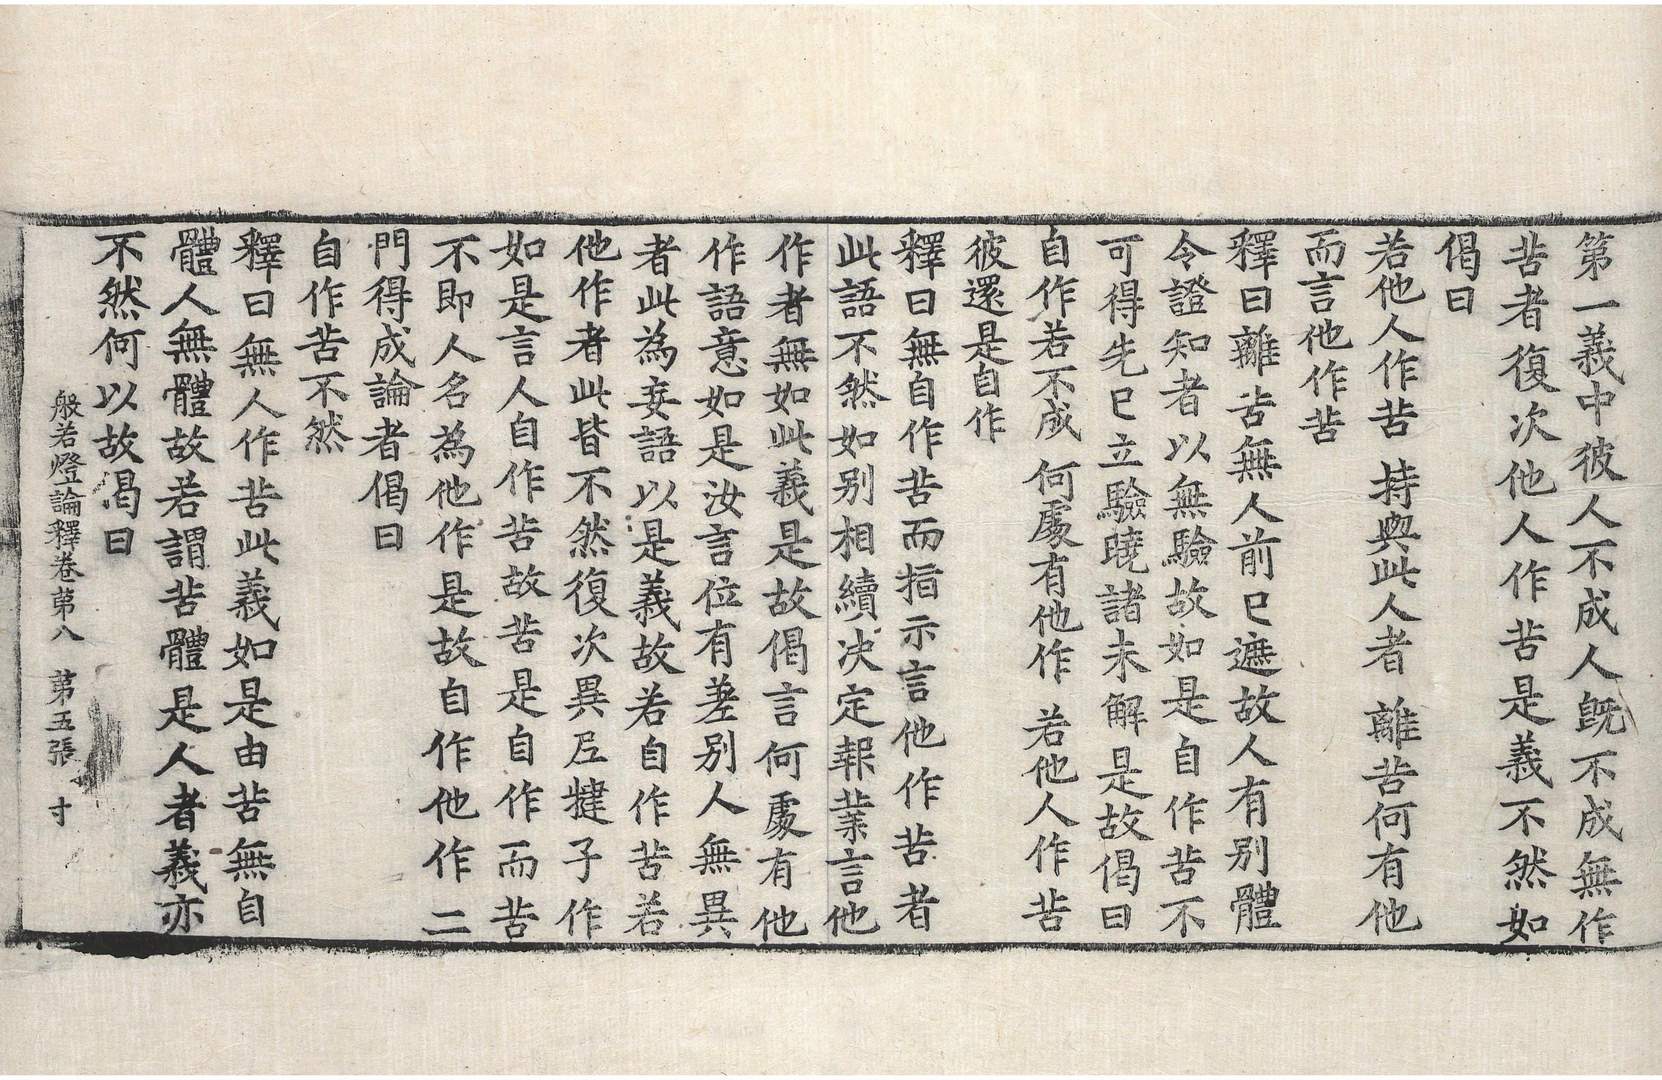 第一義中彼人不成人旣不成無作
苦者復次他人作苦是義不然如
偈曰
若他人作苦 持與此人者 離苦何有他
而言他作苦
釋曰離苦無人前已遮故人有別體
令證知者以無驗故如是自作苦不
可得先已立驗曉諸未解是故偈曰
自作若不成 何處有他作 若他人作苦
彼還是自作
釋曰無自作苦而指示言他作苦者
此語不然如别相續决定報業言他
作者無如此義是故偈言何處有他
作語意如是汝言位有差别人無異
者此為妄語以是義故若自作苦若
他作者此皆不然復次異尼揵子作
如是言人自作苦故苦是自作而苦
不即人名為他作是故自作他作二
門得成論者偈曰
自作苦不然
釋曰無人作苦此義如是由苦無自
體人無體故若謂苦體是人者義亦
不然何以故偈曰
般若燈論釋卷第八 第五張 寸